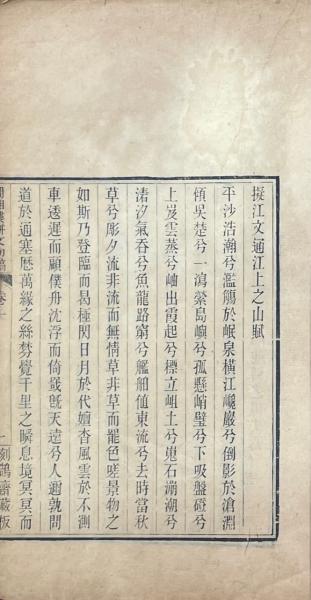 擬江文通江上之山賦
平沙浩瀚兮濫觴於岷泉橫江巉巖兮倒影於滄淵
傾吳楚兮一瀉縈島嶼兮孤懸峭壁兮下吸盤磴兮
上岌雲蒸兮岫出霞起兮標立岨土兮嵬石湍潮兮
渚汐氣吞兮魚龍路窮兮艦舶値東流兮去時當秋
草兮彫夕流非流而無情草非草而罷色嗟景物之
如斯乃登臨而曷極閱日月於代嬗杳風雲於不測
車逶遲而顧僕舟沈浮而倚檥旣天遠兮人邇孰問
道於通塞歷萬緣之絲棼覺千里之瞬息境冥冥而
刻鵠齋藏板